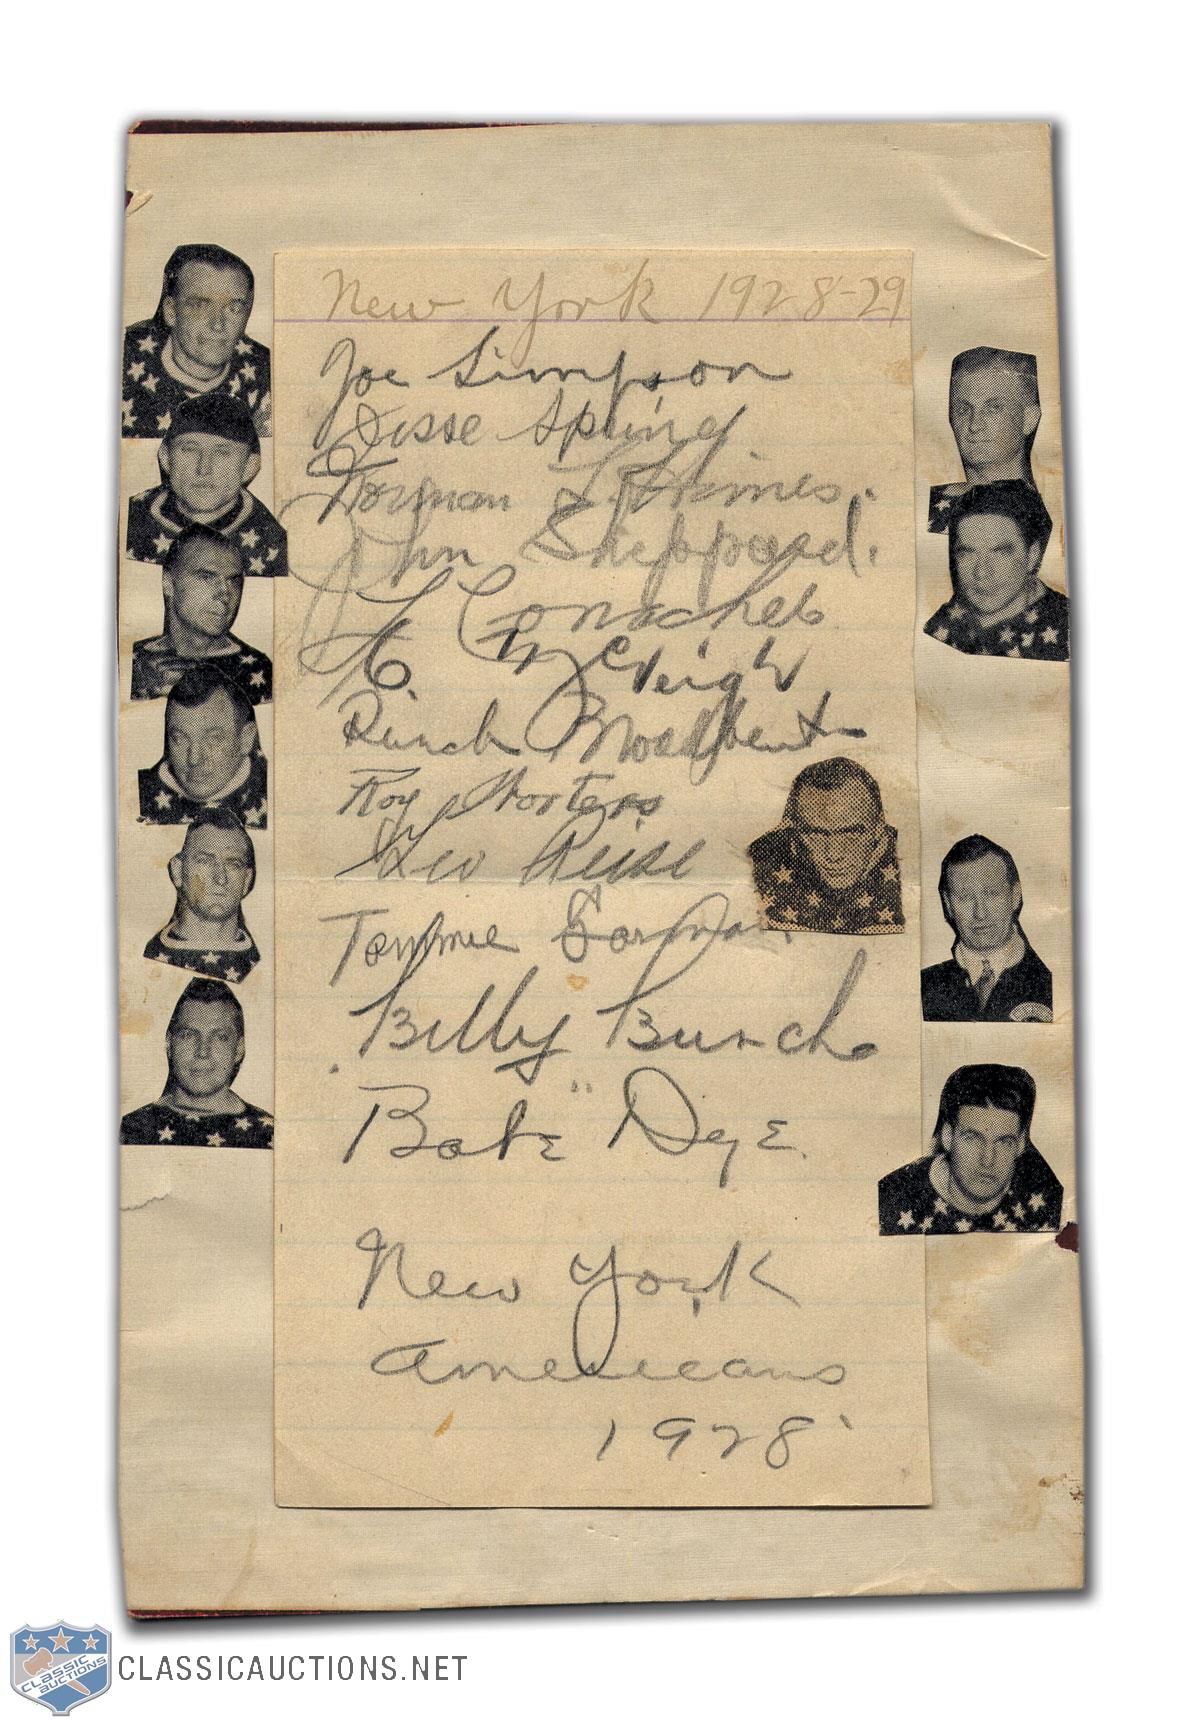 New York 1928-29
Joe Simpson
Jesse Spring
Norman L. Himes.
John Sheppard.
L Conacher
C. McVeigh
Punch Broadbent
Roy Worters
Leo Reise
Tommie Gorman.
Billy Burch.
"Babe" Dye.
New York
Americans
1928
CLASSIC AUCTIONS
CLASSICAUCTIONS.NET